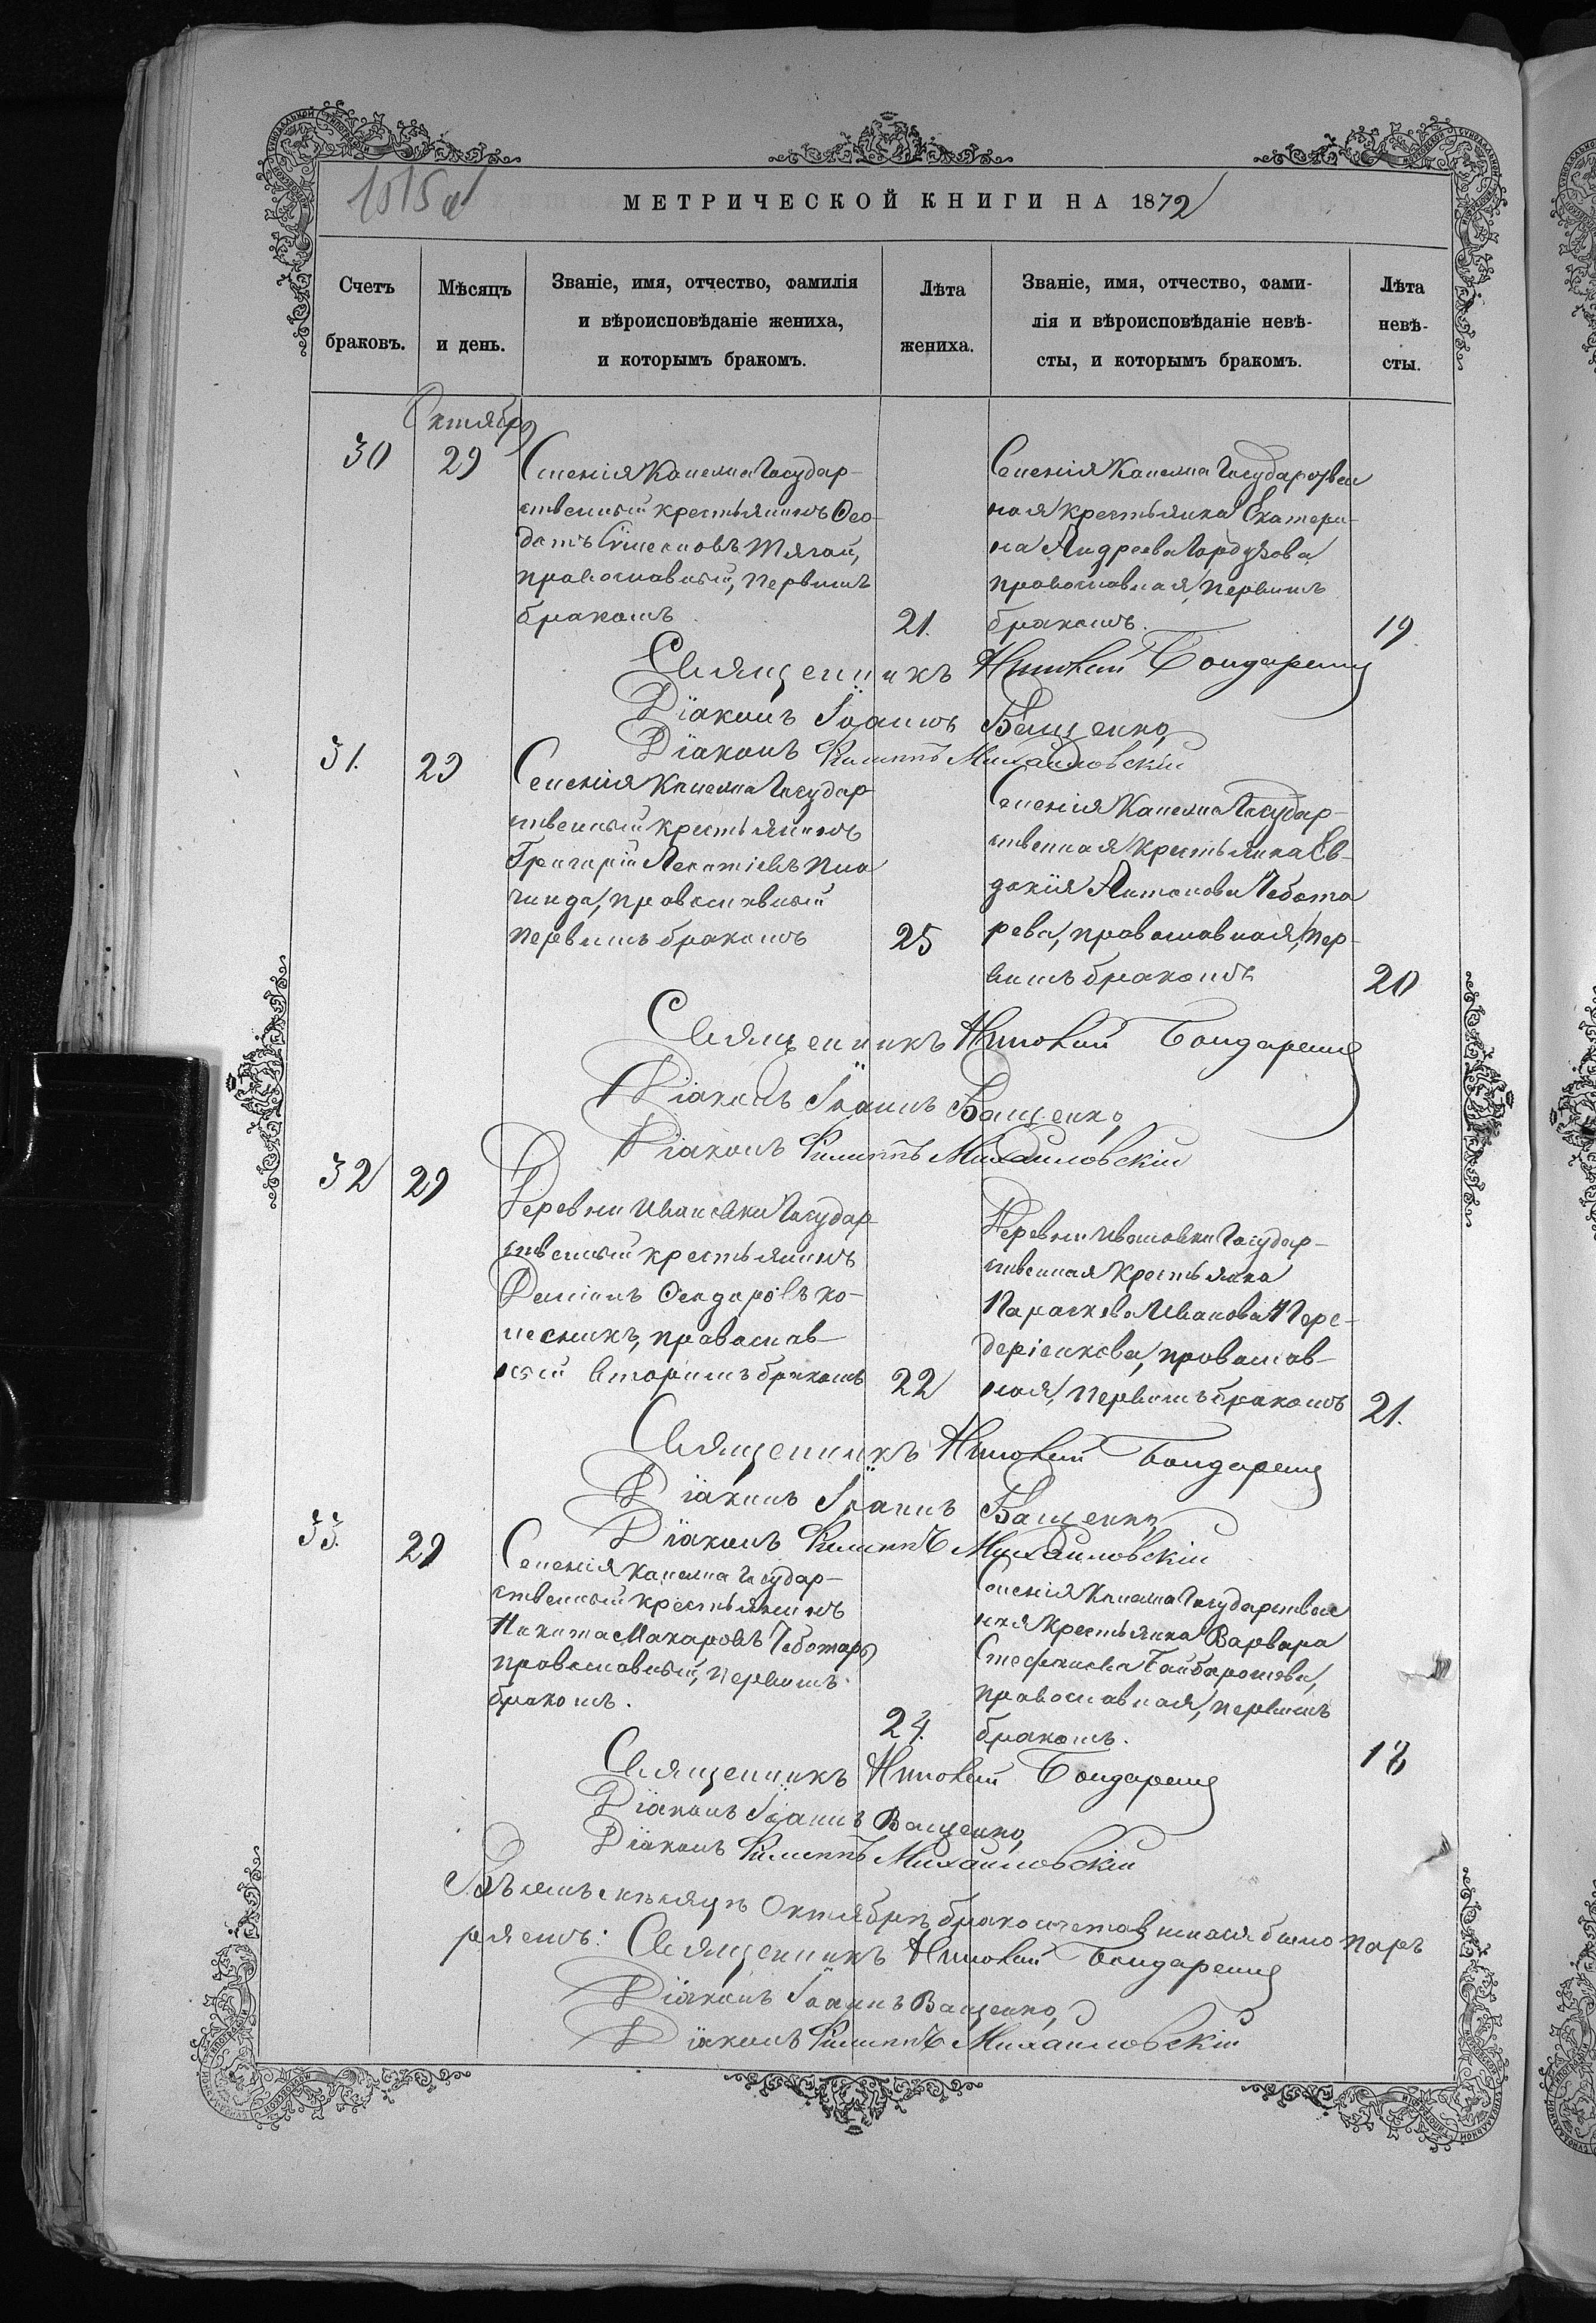 1515 об
МЕТРИЧЕСКОЙ КНИГИ НА 1872
Счетъ браковъ.
Мѣсяцъ и день.
Званіе, имя, отчество, фамилія
и вѣроисповѣданіе жениха,
и которымъ бракомъ.
Лѣта жениха.
Званіе, имя, отчество, фами-
лія и вѣроисповѣданіе невѣ-
сты, и которымъ бракомъ.
Лѣта невѣ-
сты.
Октября
30
29
Селенія Камелна Государ-
ственный крестьянинъ Ѳео-
дотъ Сѵмеоновъ Тягай,
православный, первымъ
бракомъ
21.
Селенія Камелна Государствен
ная крестьянка Екатери-
на Андреева
православная, первымъ
бракомъ.
19.
Священникъ Бондаренко
Діаконъ Іоаннъ Ващенко
Діаконъ Филиппъ Михайловскій
31.
29
Селенія Камелна Государ-
ственный крестьянинъ
Григорій Леонтіевъ Пла
чинда, православный
первымъ бракомъ
25
Селенія Камелна Государ-
ственная крестьянка Ев-
докія Антонова Чебота
рева, православная, пер-
вымъ бракомъ
20
Священникъ Бондаренко
Діаконъ Іоаннъ Ващенко
Діаконъ Филиппъ Михайловскій
32
29
Деревни Ивановки Государ-
ственный крестьянинъ
Даміанъ Ѳеодоровъ Ко-
лесникъ, православ-
ный вторымъ бракомъ
22
Деревни Ивановки Государ-
ственная крестьянка
Параскева Иванова Пере-
деріенкова, православ-
ная, первымъ бракомъ
21.
Священникъ Бондаренко
Діаконъ Іоаннъ Ващенко
Діаконъ Филиппъ Михайловскій
33.
29
Селенія Камелна Государ-
ственный крестьянинъ
Никита Макаровъ Чеботарь
православный, первымъ
бракомъ.
24.
Селенія Камелна Государствен
ная крестьянка Варвара
Стефанова Байбарошева,
православная, первымъ
бракомъ.
18
Священникъ Бондаренко
Діаконъ Іоаннъ Ващенко
Діаконъ Филиппъ Михайловскій
Въ семъ мѣсяцѣ Октябрѣ бракосочетавшихся было паръ
Священникъ Бондаренко
Діаконъ Іоаннъ Ващенко
Діаконъ Филиппъ Михайловскій